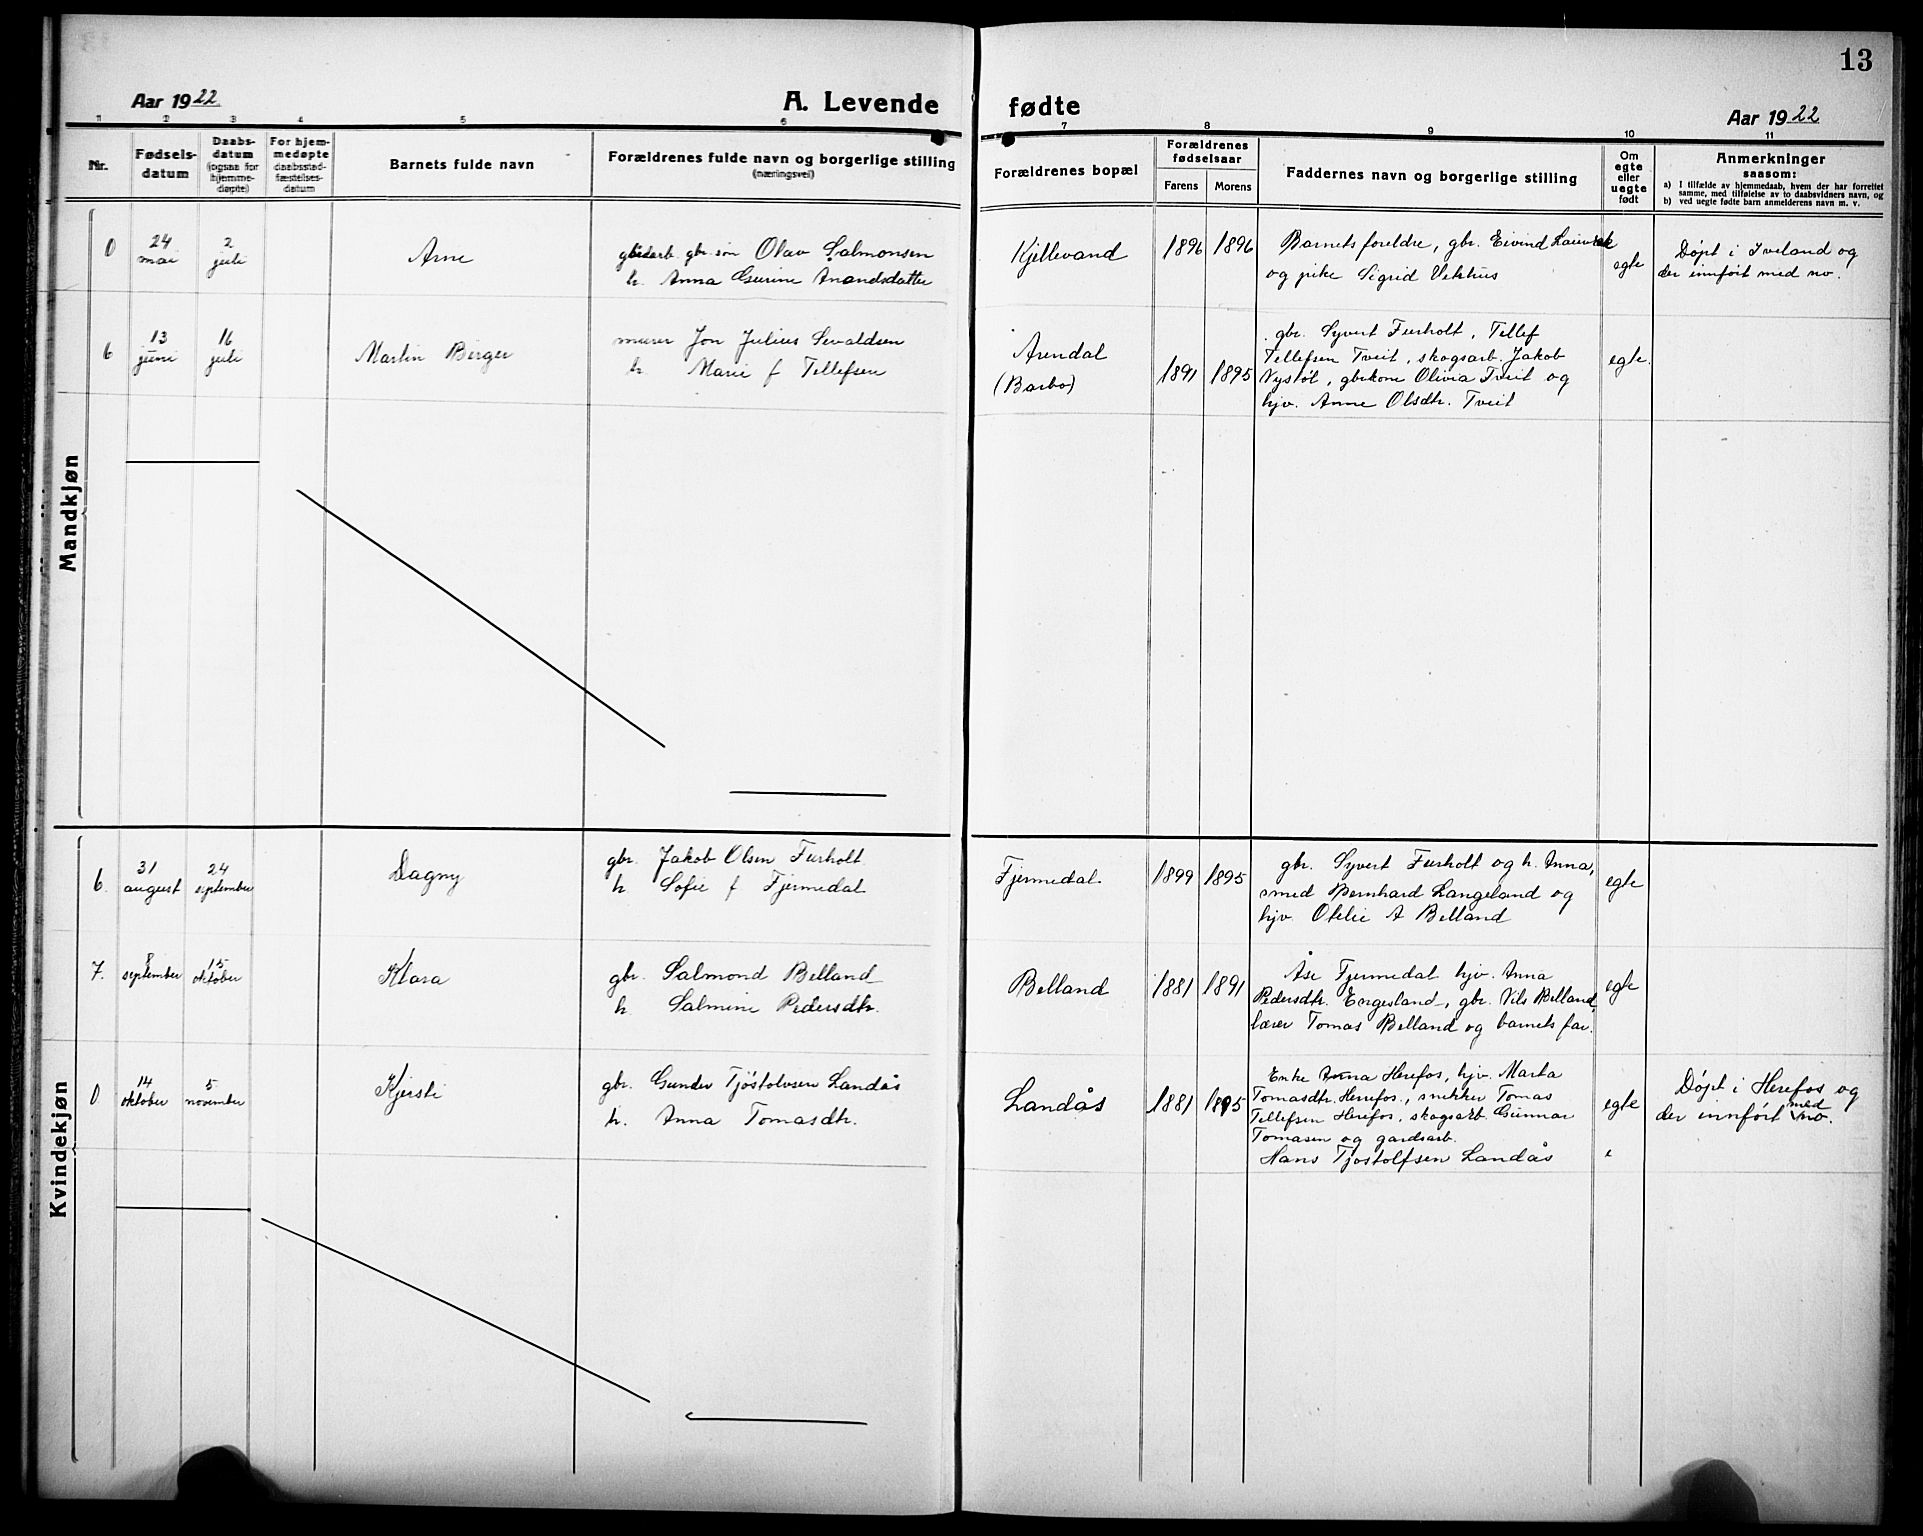 13
Aar 1922
A. Levende fødte
Aar 1922
1 2 3 4 5 6 7 8 9 10 11
Nr.
Fødsels-
datum
Daabs-
datum
(ogsaa for
hjemme-
døpte)
For hjem-
medøpte
daabsstad-
fæstelses-
datum
Barnets fulde navn
Forældrenes fulde navn og borgerlige stilling
(næringsvei)
Forældrenes bopæl
Forældrenes
fødselsaar
Farens
Morens
Faddernes navn og borgerlige stilling
Om
egte
eller
uegte
født
Anmerkninger
saasom:
a) I tilfælde av hjemmedaab, hvem der har forrettet
samme, med tilføielse av to daabsvidners navn, og
b) ved uegte fødte barn anmelderens navn m. v.
Mandkjøn
0
24
mai
2
juli
Arne
gbr. søn Olav Salmonsen
h. Anna Gurine Anandsdatter
Kjellevand
1896
1896
Barnets foreldre, gbr. Eivind
og pike Sigrid Vehus
egte
Døpt i Iveland og
der innført med no.
6
13
juni
16
juli
Martin Birger
murer Jon Julius Sevaldsen
h. Marie f Tellefsen
Arendal
(Barbo)
1891
1895
gbr. Syvert Furholt, Tellef
Tellefsen Tveit, skogsarb. Jakob
Nystøl, gbrkone Olivia Tveit og
hjv. Anne Olsdtr. Tveit
egte
Kvindekjøn
6.
31
august
24
september
Dagny
gbr. Jakob Olsen Furholt
h. Sofie f Fjermedal
Fjermedal
1899
1895
gbr. Syvert Furholt og h. Anna,
smed Bernhard Langeland og
hjv. Otelie A Belland
egte
7.
8
september
15
oktober
Klara
gbr. Salmond Belland
h. Salmine Pedersdtr.
Belland
1881
1891
Åse Fjermedal hjv. Anna
Pedersdtr. Engesland, gbr. Nils Belland,
lærer Tomas Belland og barnets far.
egte
0
14
oktober
5
november
Kjersti
gbr. Gunder Tjøstolvsen Landås
h. Anna Tomasdtr.
Landås
1881
1895
Enke Anna Herefos, hjv. Marta
Tomasdtr. Herefos, snikker Tomas
Tellefsen Herefos, skogsarb. Gunnar
Tomasen og gardsarb.
Hans Tjøstolfsen Landås
egte
Døpt i Herefos og
der innført med no.